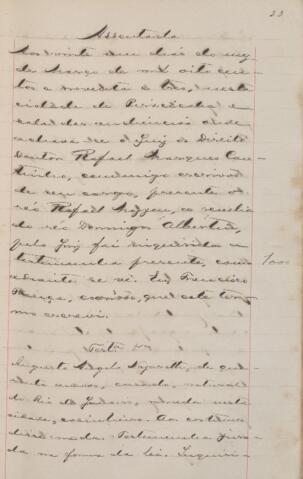 23
Assentada
Aos vinte e um dias do mez
de Março de mil oito cen-
tos e noventa e tres, nesta
cidade de Piracicaba, e
sala das audiencias onde
se achava o Juiz de Direito
Doutor Rafael Marques Cou-
tinho, commigo escrivão
de seu cargo, presente o
réo Rafael, a revelia
do réo Domingos Albertin,
pelo Juiz foi inquirida a
testemunha presente, como
adiante se vê. Eu Francisco
França, escrivão, que este ter-
mo escrevi.
Test.
Augusto Angelo, de qua-
renta annos, casado, natural
do Rio de Janeiro, morador nesta
cidade, cosinheiro. Aos costumes
disse nada. Testemunha jura-
da na forma da lei. Inquiri-